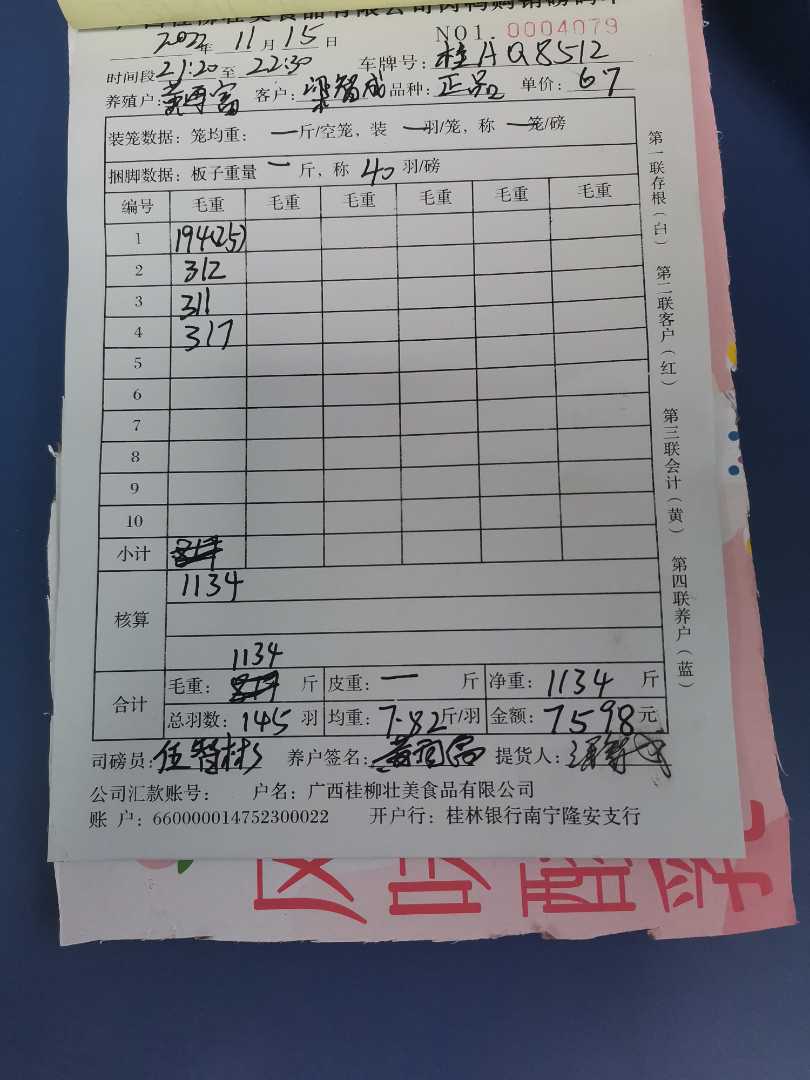 广西桂柳壮美食品有限公司肉鸭购销磅码单
2022年 11月15日 NO1. 0004079
时间段21:20至22:30 车牌号:桂AQ8512
养殖户: 客户:梁智成 品种:正品2 单价:67
装笼数据:笼均重: 一斤/空笼,装 一羽/笼,称 一笼/磅
捆脚数据:板子重量 一 斤,称 40 羽/磅
编号 毛重 毛重 毛重 毛重 毛重 毛重
1 194(25)
2 312
3 311
4 317
5
6
7
8
9
10
小计
核算 1134
1134
合计 毛重: 斤 皮重:一 斤 净重:1134 斤
总羽数:145 羽 均重:7.82斤/羽 金额:7598元
司磅员: 养户签名: 提货人:
公司汇款账号: 户名:广西桂柳壮美食品有限公司
账 户:660000014752300022 开户行:桂林银行南宁隆安支行
第一联存根(白) 第二联客户(红) 第三联会计(黄) 第四联养户(蓝)